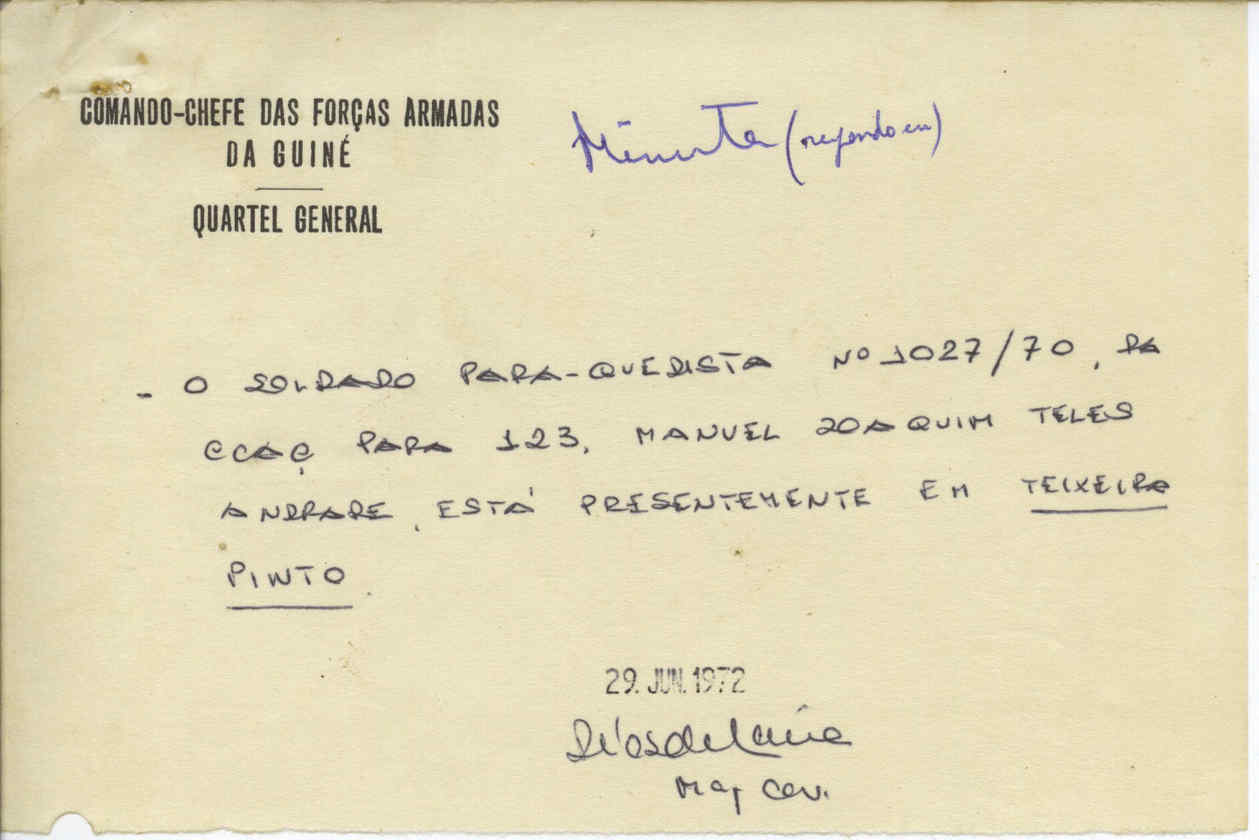 COMANDO-CHEFE DAS FORÇAS ARMADAS
DA GUINÉ
QUARTEL GENERAL
Minuta
- O SOLDADO PARA-QUEDISTA Nº 1027/70, DA
CCAÇ PARA 123, MANUEL JOAQUIM TELES
ANDRADE, ESTÁ PRESENTEMENTE EM TEIXEIRA
PINTO
29. JUN. 1972
Maj Cav.